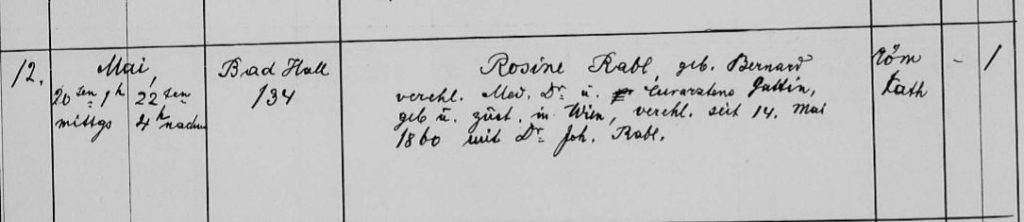 12.
Mai,
20ten 1h 22ten
mittgs 4h nachm
Bad Hall
134
Rosine Rabl, geb. Bernard
verehl. Med. Dr. u. Curarztens Gattin,
geb u. zust. in Wien, verehl. seit 14. Mai
1860 mit Dr. Joh. Rabl.
röm
kath
- 1